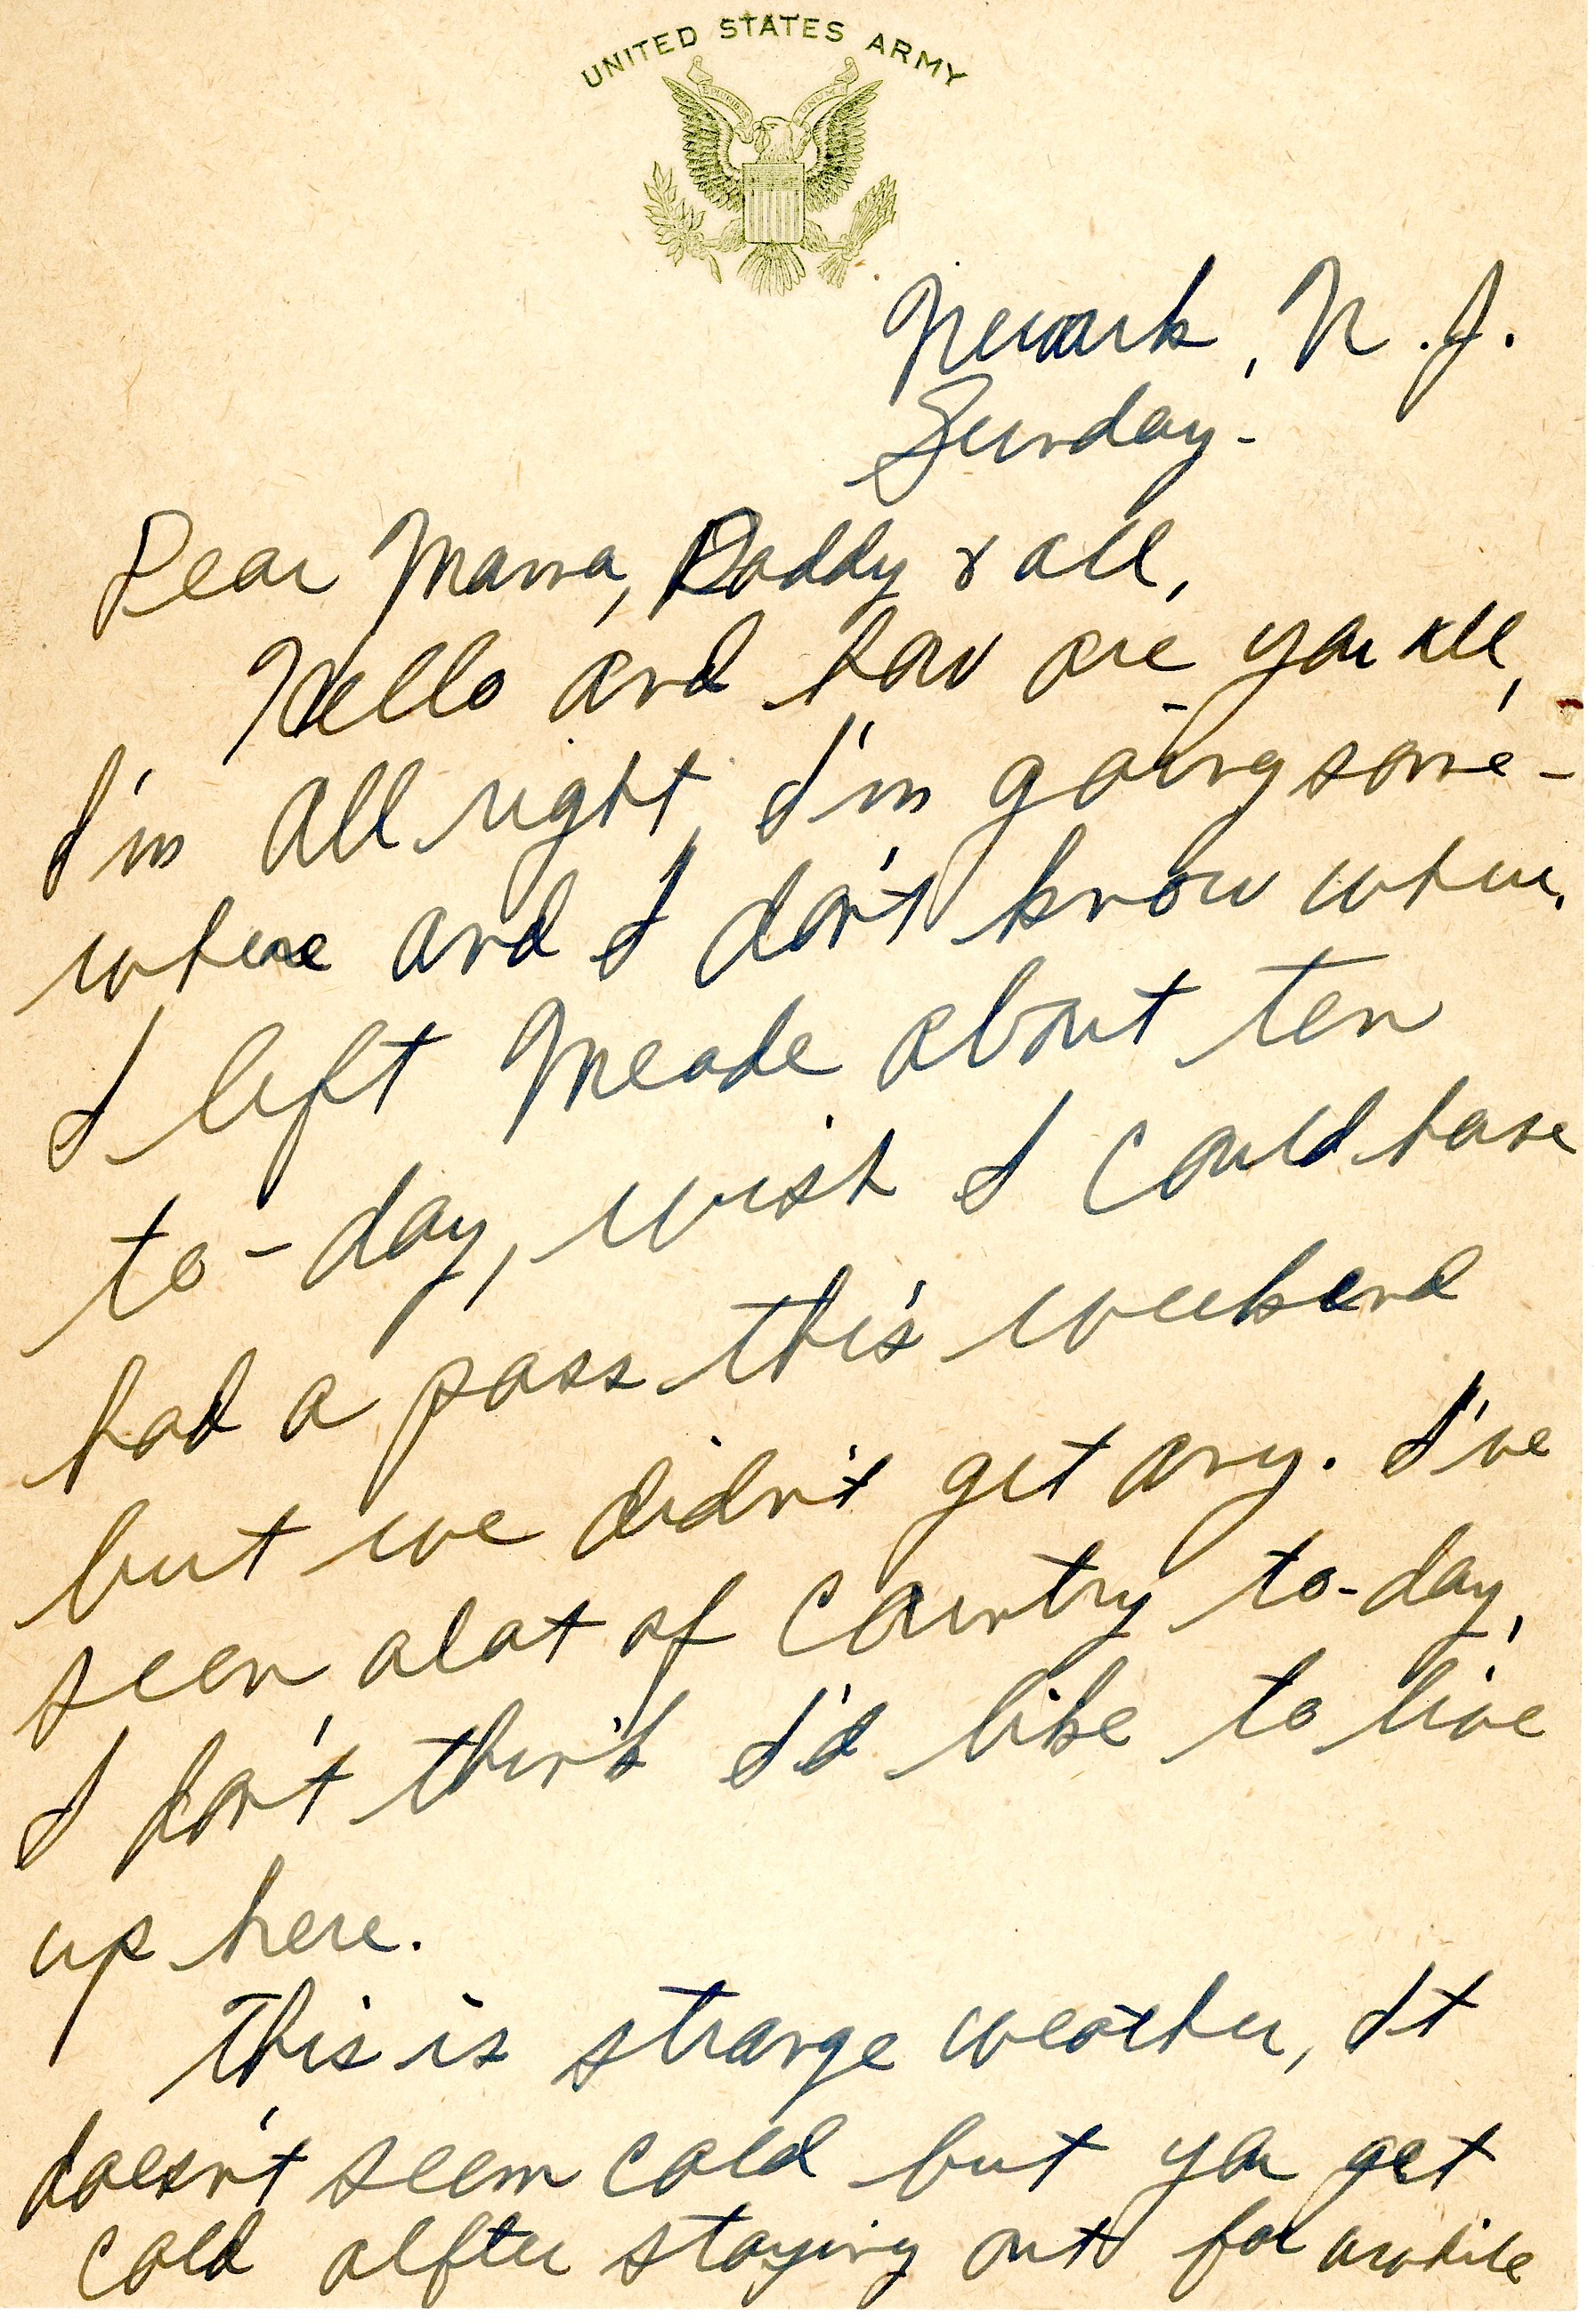 UNITED STATES ARMY
E PLURIBUS UNUM
Newark, N.J.
Sunday-
Dear Mama, Daddy & all,
Hello and how are you all,
I'm all right, I'm going some-
where and I don't know where.
I left Meade about ten
to-day, wish I could have
had a pass this weekend
but we didn't get any. I've
seen alot of country to-day,
I don't think I'd like to live
up here.
This is strange weather, It
doesn't seem cold but you get
cold alfter staying out for awhile